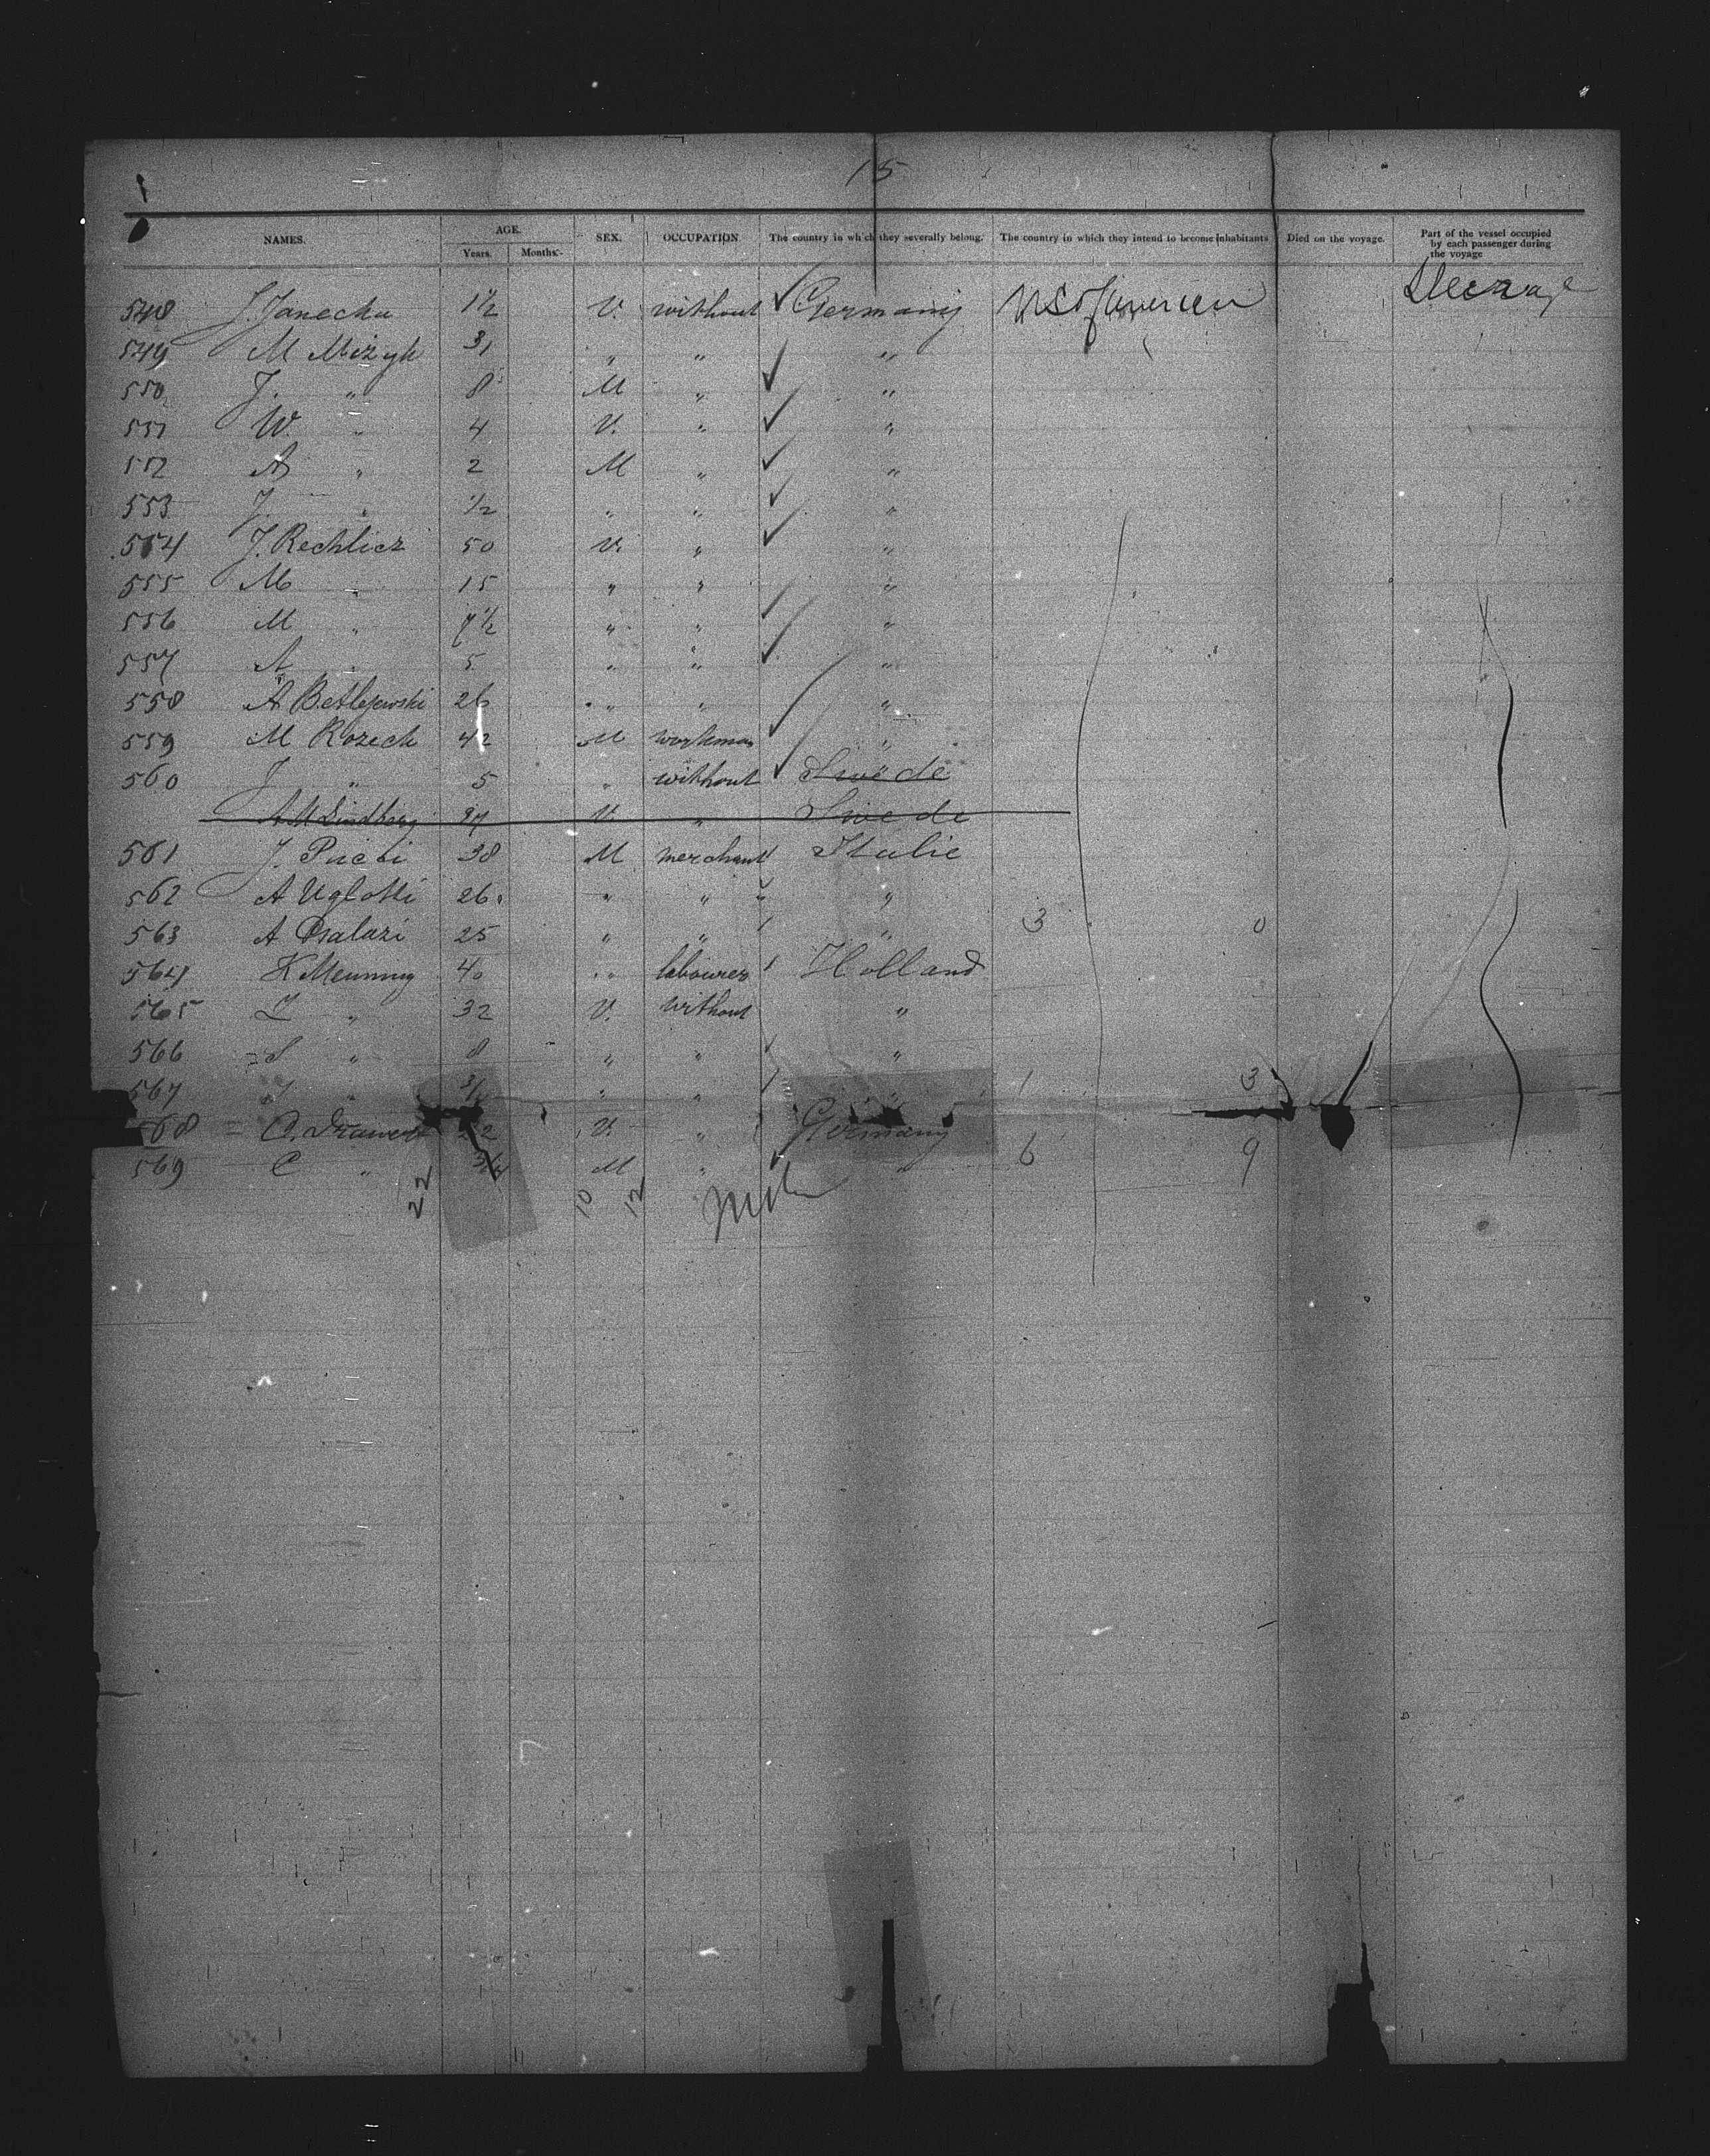 15
NAMES. AGE. Years. Months. SEX. OCCUPATION. The country in which they severally belong. The country in which they intend to become inhabitants Died on the voyage. Part of the vessel occupied by each passenger during the voyage
548 J. Janecka 1½ V. without Germany U S of
549 M Mizyk 31 " " "
550 J. " 8 M " "
551 W. " 4 V. " "
552 A " 2 M " "
553 J. " ½ " " "
554 J. Rechlicz 50 V. " "
555 M " 15 " " "
556 M " 7½ " " "
557 A " 5 " " "
558 A Betlejewski 26 " " "
559 M Rozeck 42 M workman "
560 J " 5 " without Swede
A M Lindberg V. " Swede
561 J. Pucci 38 M merchant Italie
562 A Uglotti 26 " " "
563 A 25 " " " 3 0
564 K 40 " labourer Holland
565 " 32 V. without "
566 S " 8 " " "
567 " " " " 1 3
568 22 V. " Germany
569 C " M " " 6 9
22 10 12